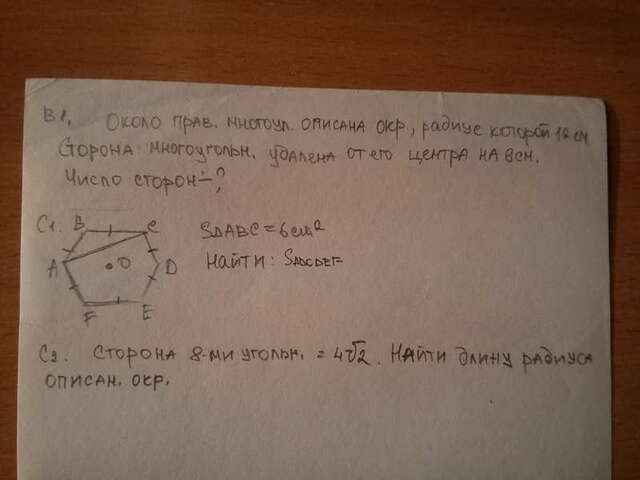 В1. Около прав. многоуг. описана окр., радиус которой 12 см
Сторона многоугольн. удалена от его центра на 8см.
Число сторон - ?
С1. B C
A O D
F E
SΔABC = 6см²
Найти: SABCDEF
С2. Сторона 8-ми угольн. = 4√2. Найти длину радиуса
описан. окр.